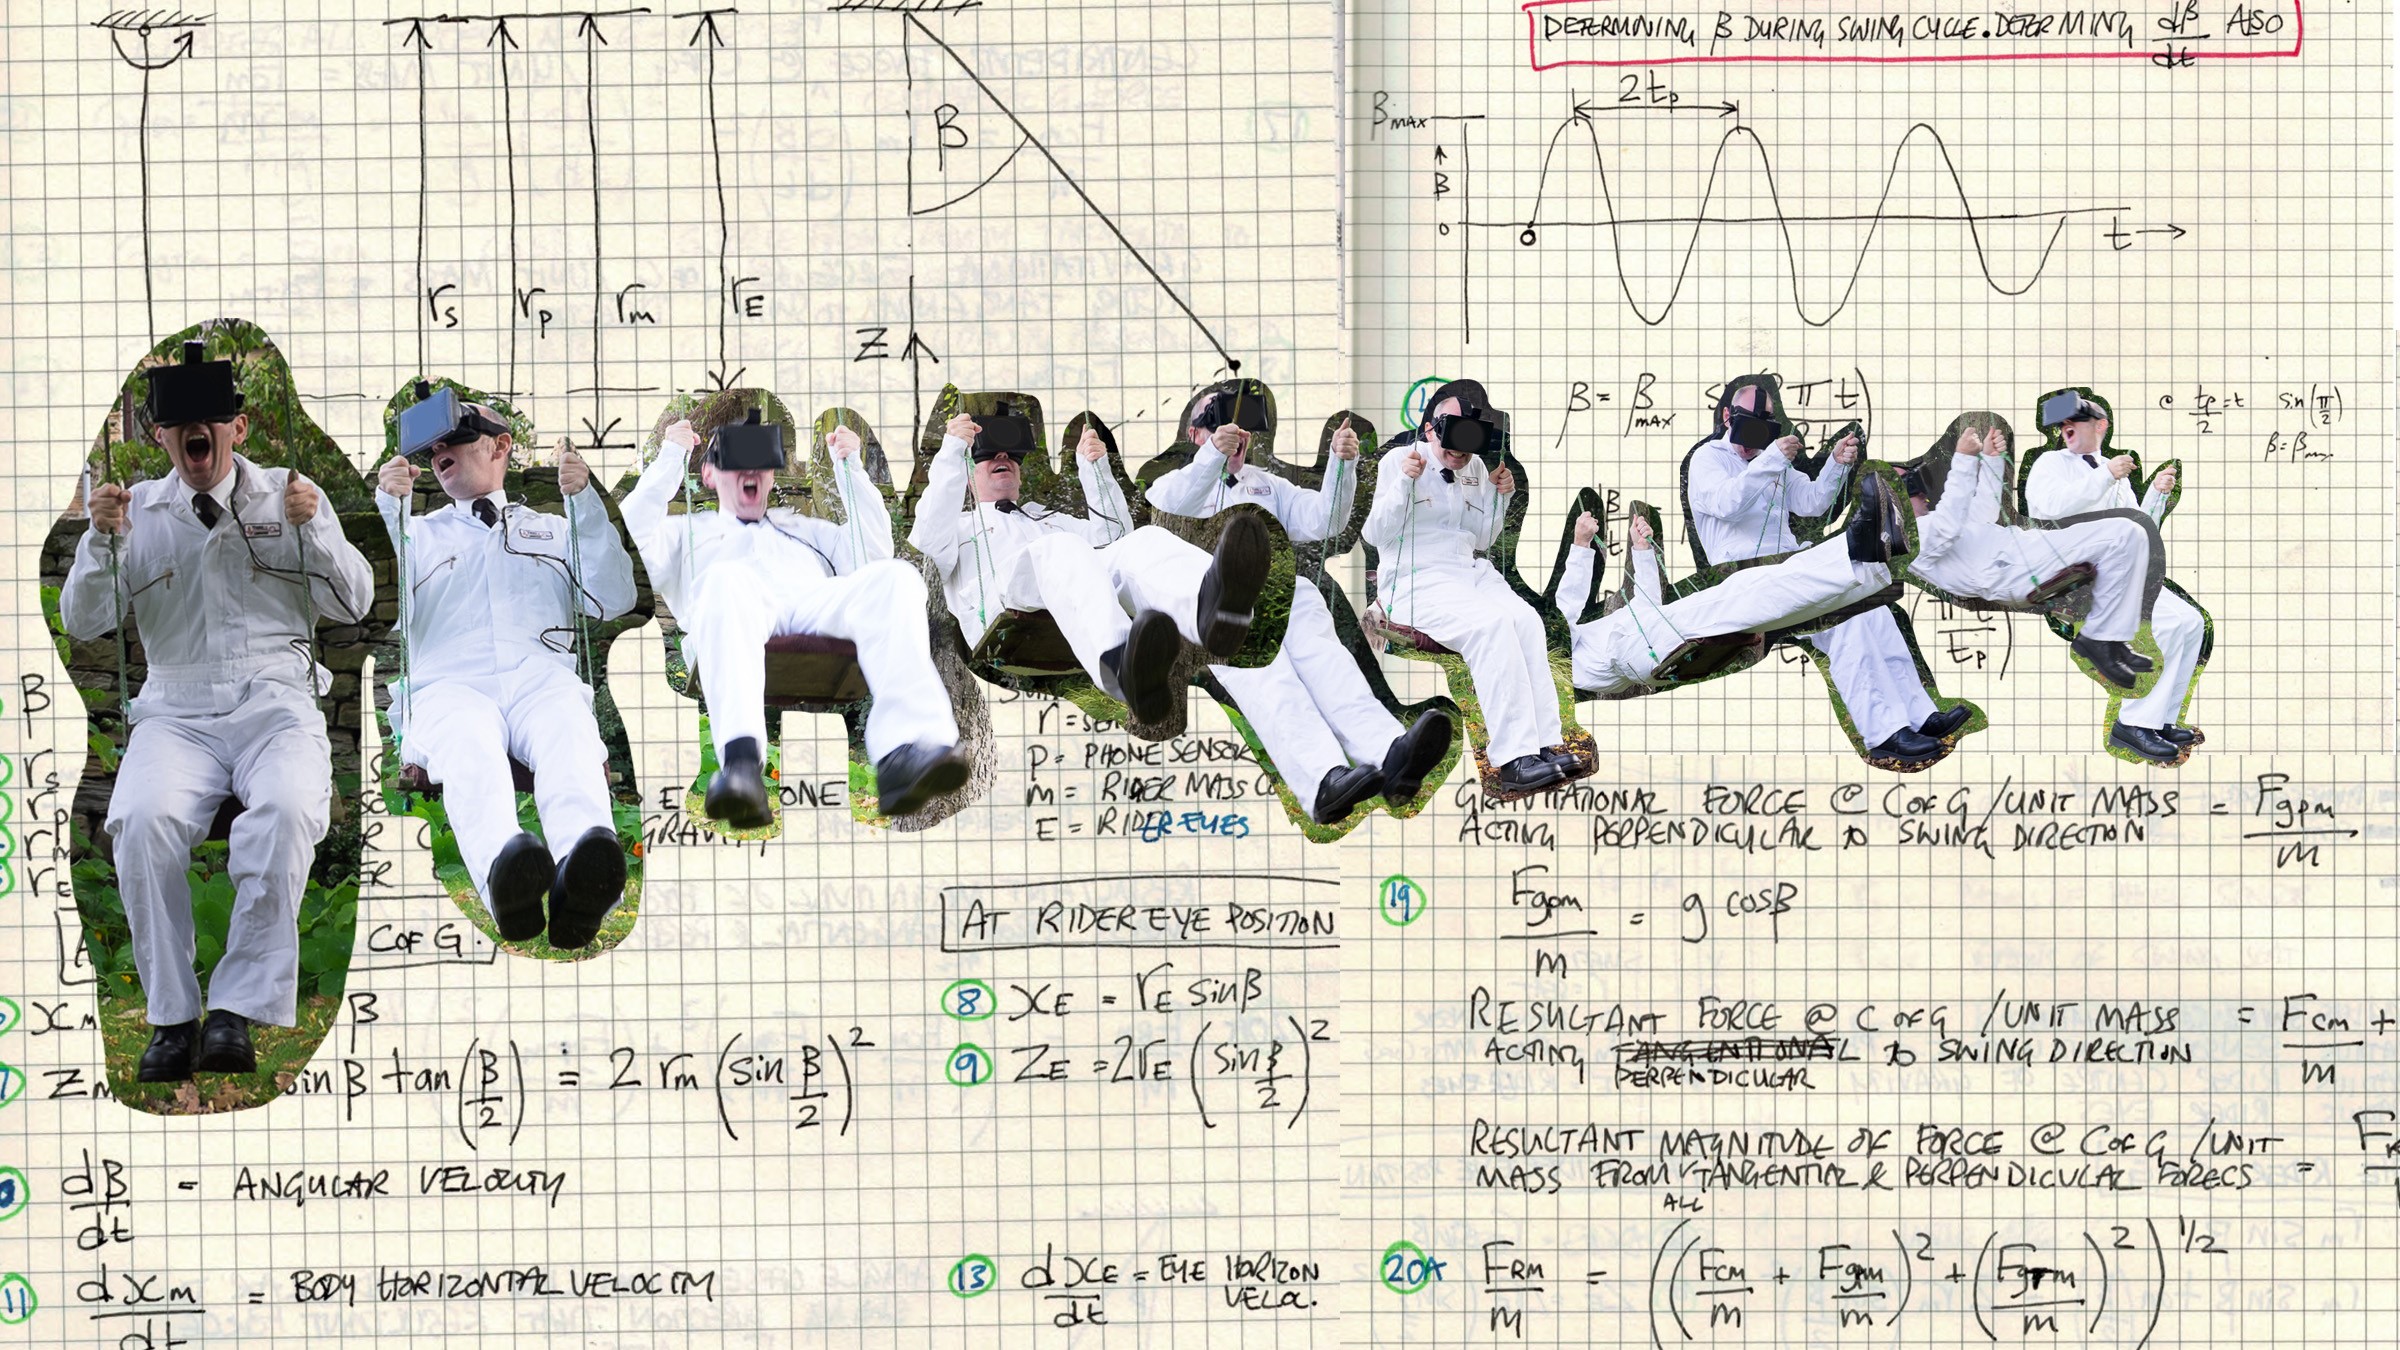 DETERMINING β DURING SWING CYCLE. DETERMING dβ/dt ALSO
2tp
βMAX
β
0
0
t
β
rs
rp
rm
rE
Z
β = βMAX
@ tp/2 = t sin(π/2)
β = βmax
β
rs
rp
rm
rE
r =
P = PHONE SENSOR
m = RIDER MASS
E = RIDER EYES
C of G.
AT RIDER EYE POSITION
β
sin β tan(β/2) = 2 rm (sin β/2)²
8 xE = rE sinβ
9 ZE = 2rE (sin β/2)²
dβ/dt = ANGULAR VELOCITY
11 dxm/dt = BODY HORIZONTAL VELOCITY
13 dxE/dt = EYE HORIZON
VELOC.
GRAVITATIONAL FORCE @ C of G /UNIT MASS = Fgpm/m
ACTING PERPENDICULAR TO SWING DIRECTION
19 Fgpm/m = g cosβ
RESULTANT FORCE @ C of G /UNIT MASS = Fcm/m +
ACTING TANGENTIONAL TO SWING DIRECTION
PERPENDICULAR
RESULTANT MAGNITUDE OF FORCE @ C of G /UNIT
MASS FROM TANGENTIAL & PERPENDICULAR FORECS =
ALL
20A FRm/m = ((Fcm/m + Fgpm/m)² + (FgTm/m)²)^1/2